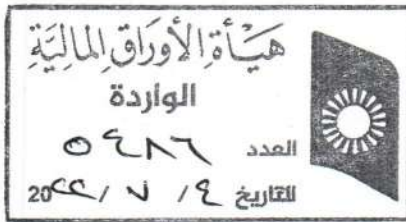 هَيْأَةِ الأَوْرَاقِ المَالِيَّةِ
الواردة
العدد ٥٤٨٦
للتاريخ ٤/ ٧ /20٢٢